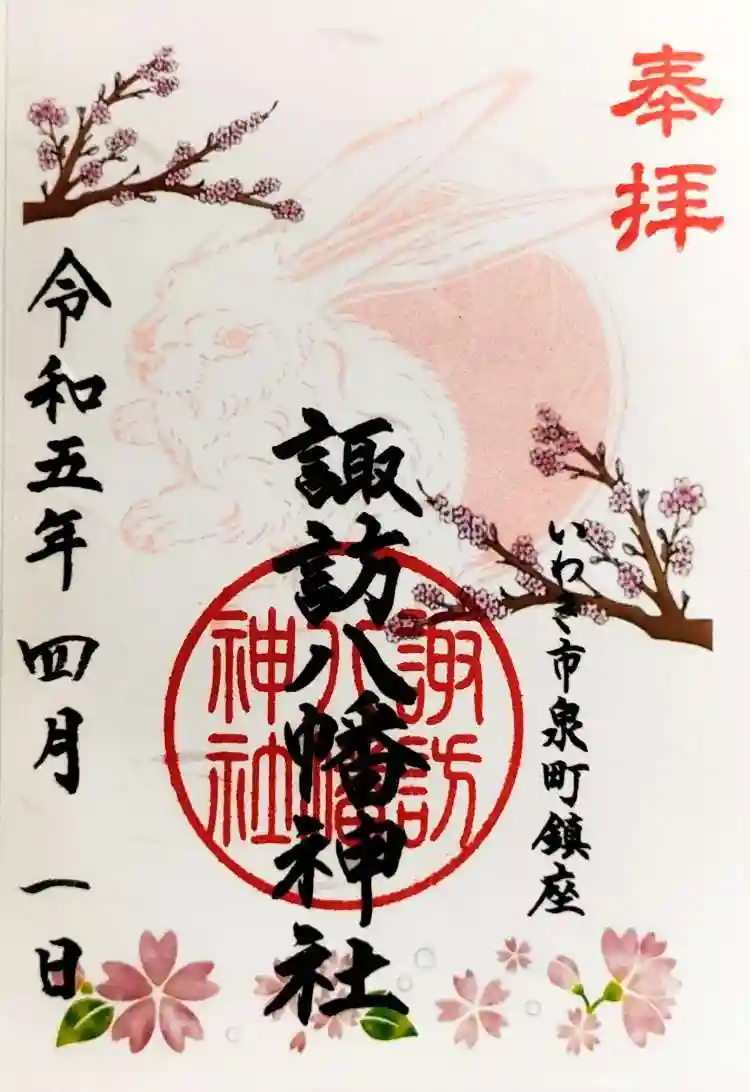 奉拝
いわき市泉町鎮座
諏訪八幡神社
諏訪
八幡
神社
令和五年四月一日